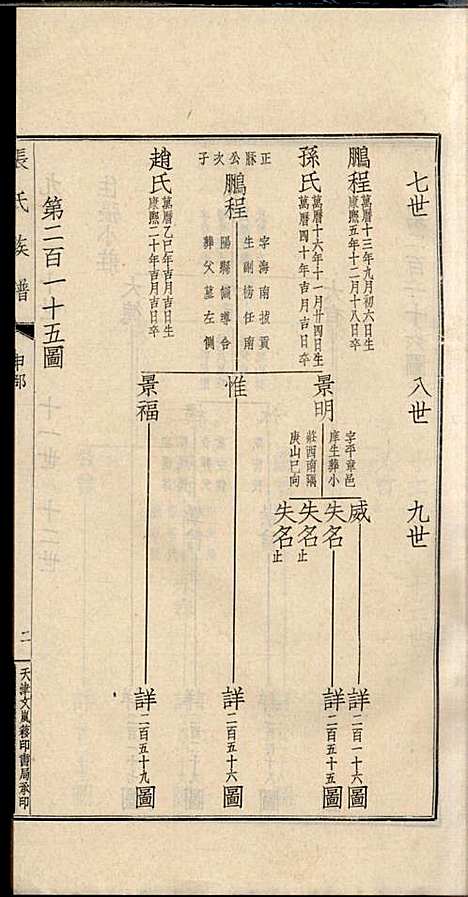 七世
八世
九世
鵬程
萬曆十三年九月初六日生
康熙五年十二月十八日卒
孫氏
萬曆十六年十一月廿四日生
萬曆四十年吉月吉日卒
正
厤
公
次
子
鵬程
字海南拔貢
生副榜任南
陽縣訓導合
葬父墓左側
趙氏
萬曆乙巳年吉月吉日生
康熙二十年吉月吉日卒
景明
字平章邑
庠生葬小
莊西南隅
庚山巳向
惟
景福
威
詳二百一十六圖
失名
詳二百五十五圖
失名止
失名止
詳二百五十六圖
詳二百五十九圖
第二百一十五圖
張氏族譜
申部
二
天津文嵐簃印書局承印